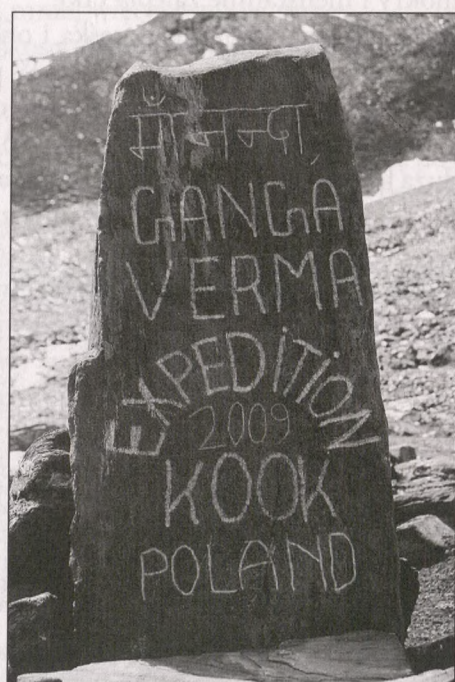 माँ नन्दा,
GANGA
VERMA
EXPEDiTiON
2009
KOOK
POLAND